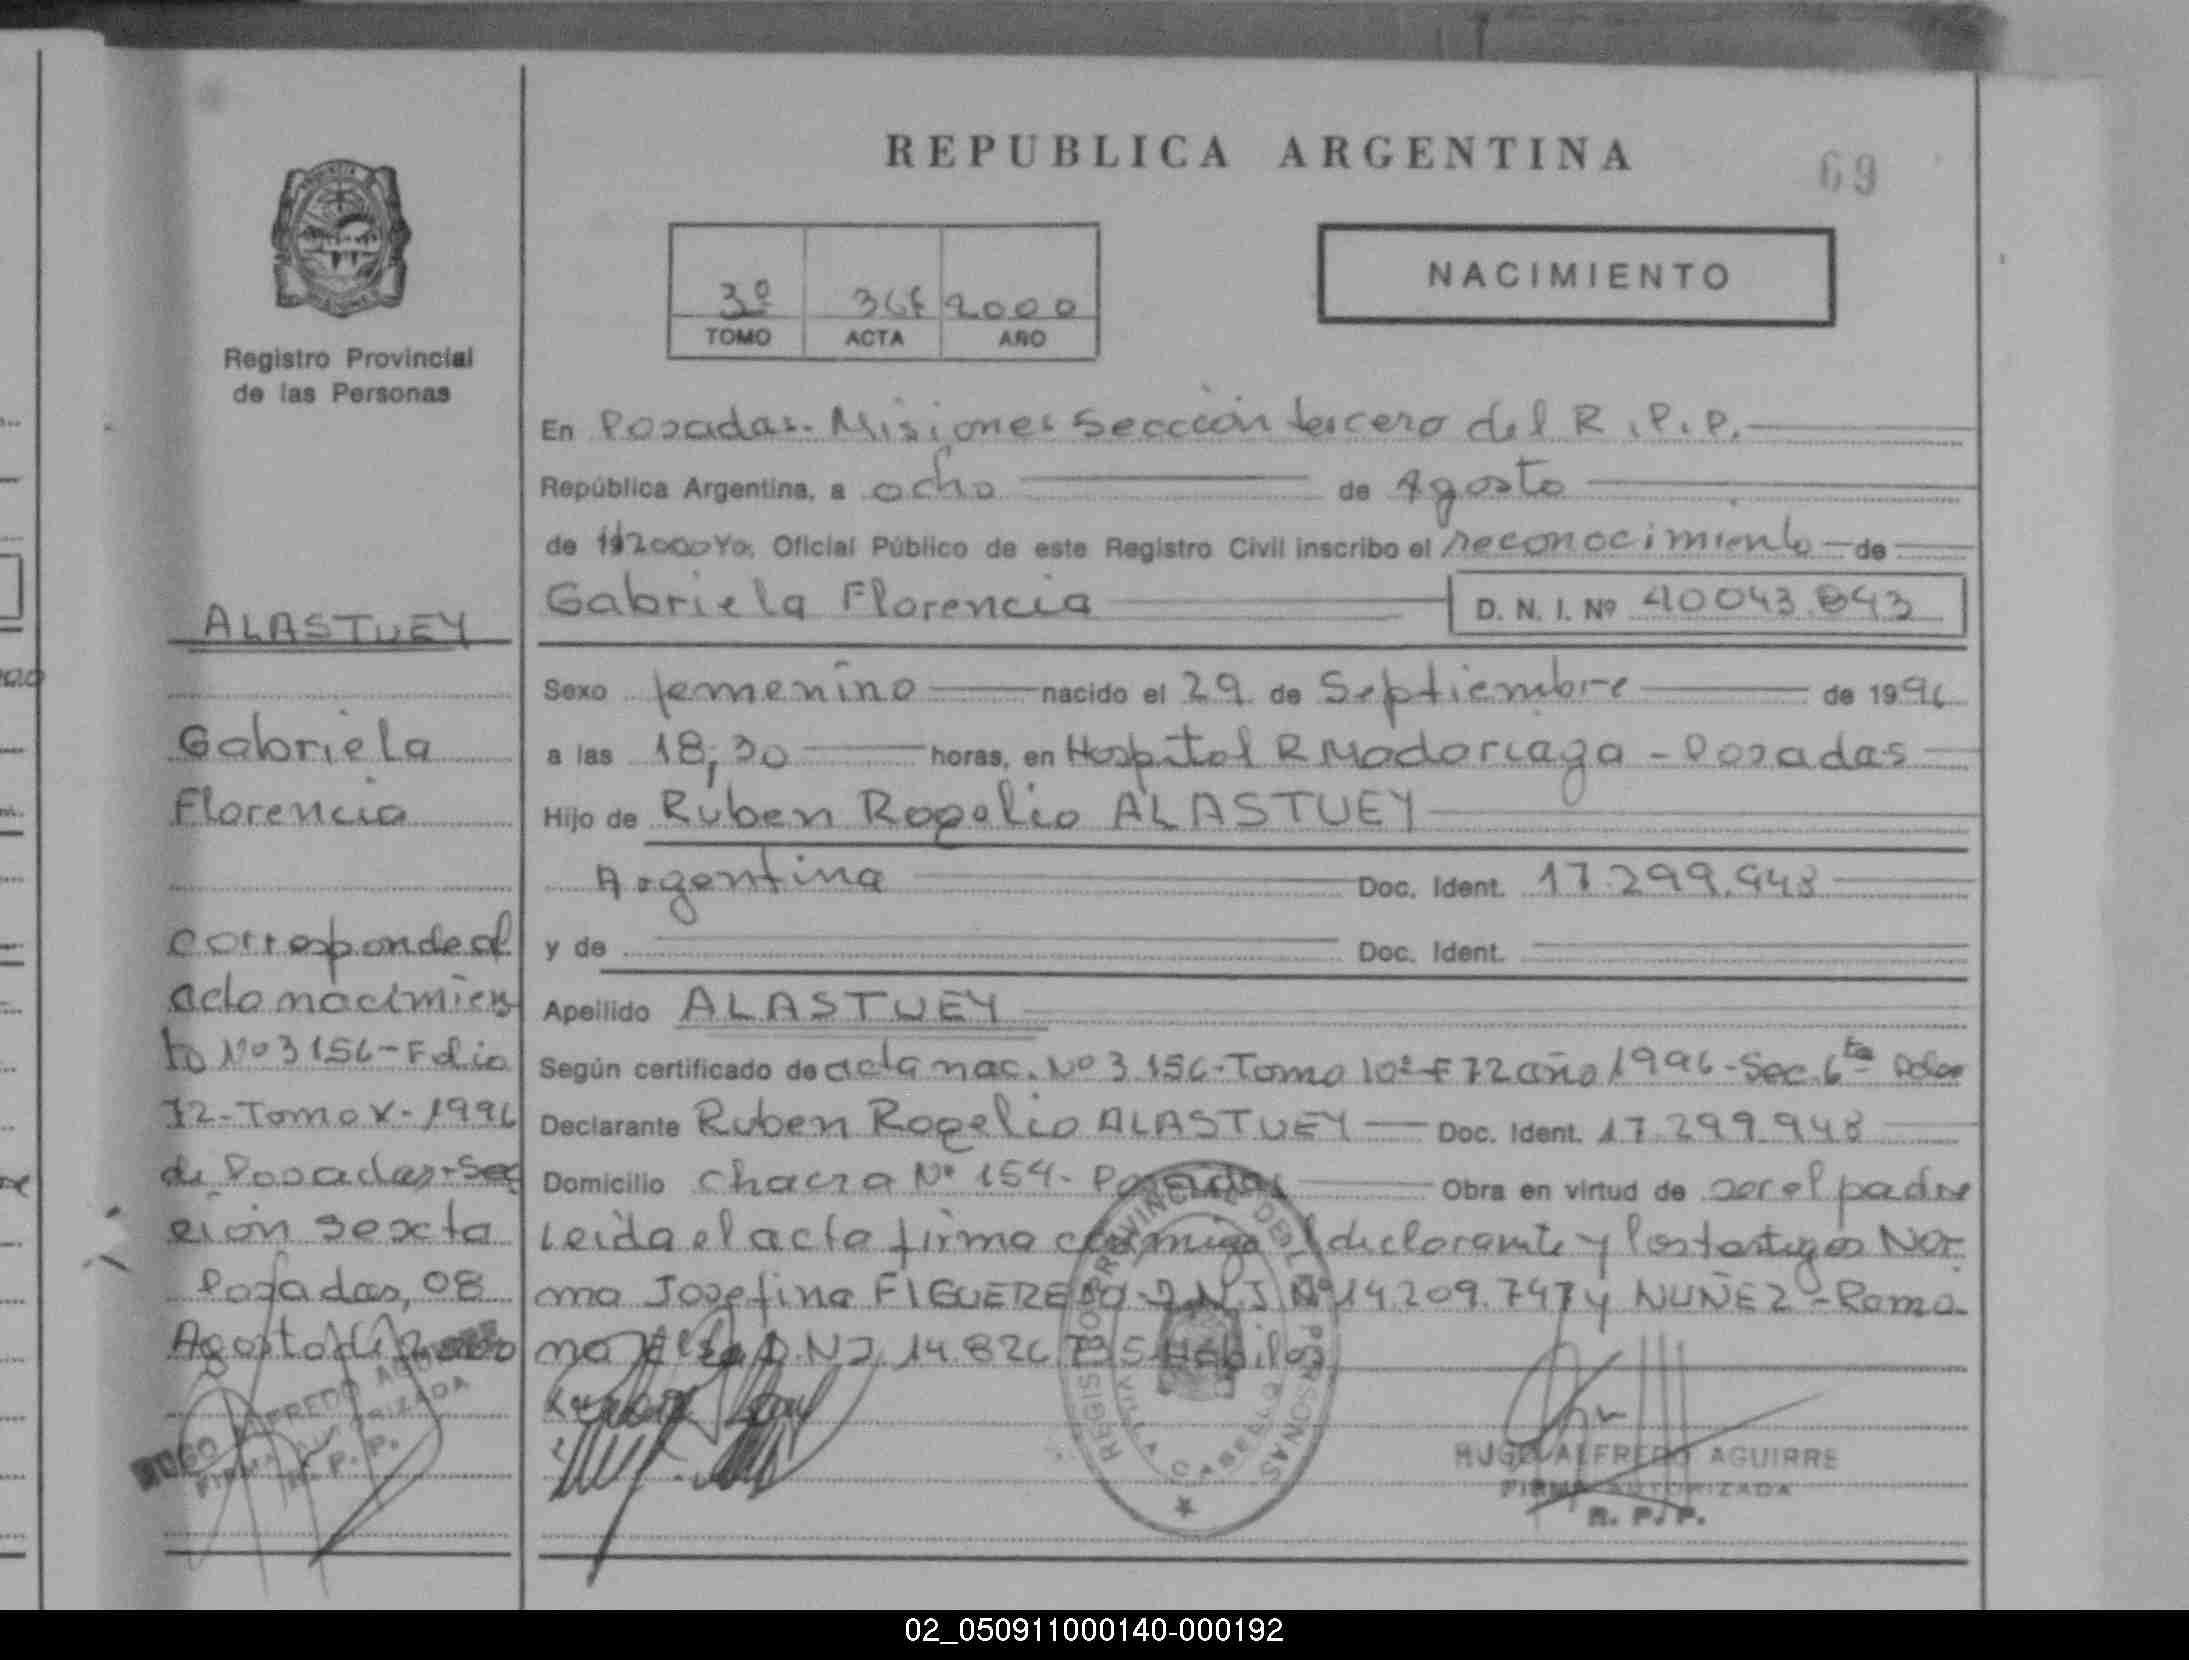 REPUBLICA ARGENTINA
69
NACIMIENTO
3º 2000
TOMO ACTA AÑO
Registro Provincial
de las Personas
ALASTUEY
Gabriela
Florencia
corresponde al
acta nacimien
to Nº 3156-Folio
72-Tomo X-1996
de Posadas-Sec
ción sexta
Posadas, 08
Agosto de 2000
HUGO ALFREDO AGUIRRE
FIRMA AUTORIZADA
R. P. P.
En Posadas-Misiones Sección tercera del R.P.P.
República Argentina, a ocho de Agosto
de 2000 Yo, Oficial Público de este Registro Civil inscribo el reconocimiento de
Gabriela Florencia D. N. I. Nº 40043.843
Sexo femenino nacido el 29 de Septiembre de 1996
a las 18,30 horas, en Hospital R Madariaga - Posadas
Hijo de Ruben Rogelio ALASTUEY
Argentina Doc. Ident. 17.299.948
y de Doc. Ident.
Apellido ALASTUEY
Según certificado de acta nac. Nº 3156-Tomo 10º-F 72 año 1996-Sec. 6ta Pdas
Declarante Ruben Rogelio ALASTUEY Doc. Ident. 17.299.948
Domicilio chacra Nº 154- Posadas Obra en virtud de ser el padre
Leida el acta firma conmigo el declarante y los testigos Nor
ma Josefina FIGUEREDO D.N.I Nº 14.209.747 y NUÑEZ-Ramo
na D.N.I 14.826.795 Hábiles
REGISTRO PROVINCIAL DE LAS PERSONAS
HUGO ALFREDO AGUIRRE
FIRMA AUTORIZADA
R. P. P.
02_050911000140-000192